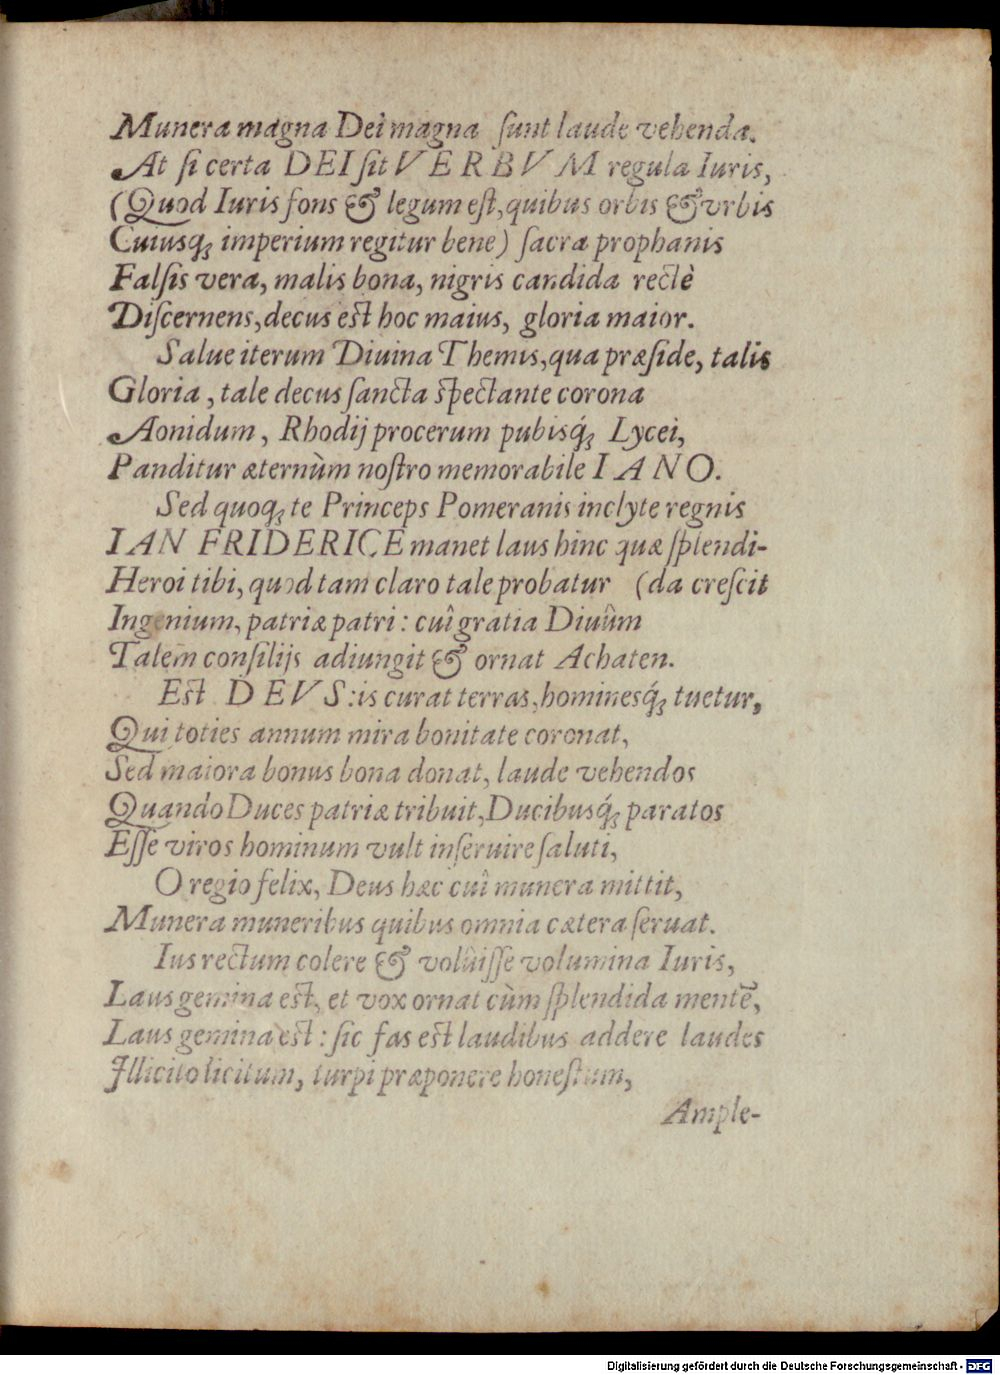 Munera magna Dei magna ſunt laude vehenda.
At ſi certa DEI ſit VERBVM regula Iuris,
(Quod Iuris fons & legum eſt, quibus orbis & vrbis
Cuiusq́; imperium regitur bene) ſacra prophanis
Falſis vera, malis bona, nigris candida rectè
Diſcernens, decus eſt hoc maius, gloria maior.
Salue iterum Diuina Themis, qua præſide, talis
Gloria, tale decus ſancta ſpectante corona
Aonidum, Rhodij procerum pubisq́; Lycei,
Panditur æternùm noſtro memorabile IANO.
Sed quoq; te Princeps Pomeranis inclyte regnis
IAN FRIDERICE manet laus hinc quæ ſplendi-
Heroi tibi, quod tam claro tale probatur (da creſcit
Ingenium, patriæ patri: cuî gratia Diuûm
Talem conſilijs adiungit & ornat Achaten.
Eſt DEVS: is curat terras, hominesq́; tuetur,
Qui toties annum mira bonitate coronat,
Sed maiora bonus bona donat, laude vehendos
Quando Duces patriæ tribuit, Ducibusq́; paratos
Eſſe viros hominum vult inſeruire ſaluti,
O regio felix, Deus hæc cuî munera mittit,
Munera muneribus quibus omnia cætera ſeruat.
Ius rectum colere & volûiſſe volumina Iuris,
Laus gemina eſt, et vox ornat cùm ſplendida mentē,
Laus gemina eſt: ſic fas eſt laudibus addere laudes
Illicito licitum, turpi præponere honeſtum,
Ample-
Digitalisierung gefördert durch die Deutsche Forschungsgemeinschaft - DFG